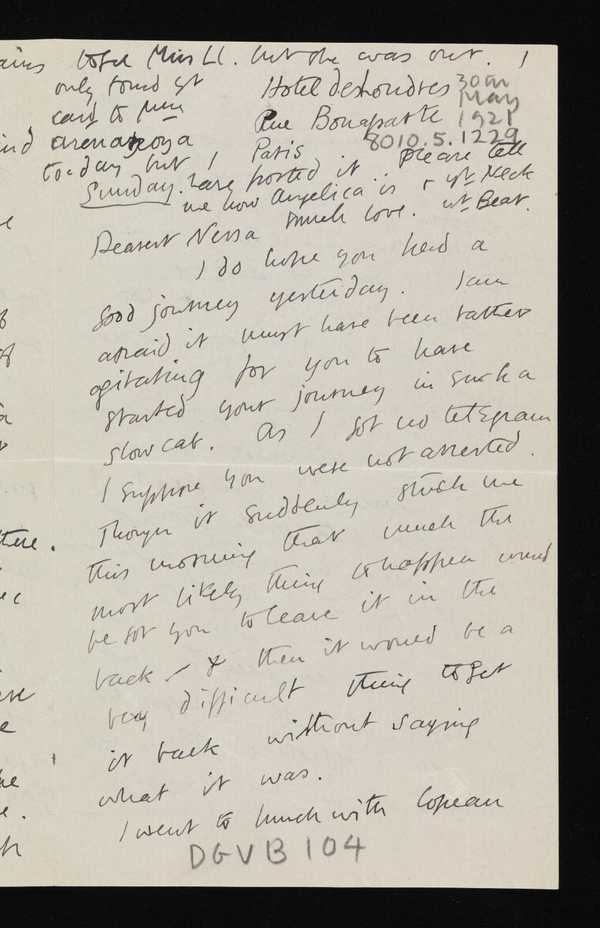 to see Miss Ll. but she was out. I
only found yr
card to
to-day but I
Sunday. have posted it. Please tell
me how Angelica is & yr Neck
much love. yr Bear.
Hotel de Londres
Rue Bonaparte
Paris
30th
May
1921
8010.5.1229
Dearest Nessa
I do hope you had a
good journey yesterday. I am
afraid it must have been rather
agitating for you to have
started your journey in such a
slow cab. As I got no telegram
I suppose you were not arrested.
Though it suddenly struck me
this morning that much the
most likely thing to happen would
be for you to leave it in the
back - & then it would be a
very difficult thing to get
it back without saying
what it was.
I went to lunch with Copeau
DGVB 104
there.